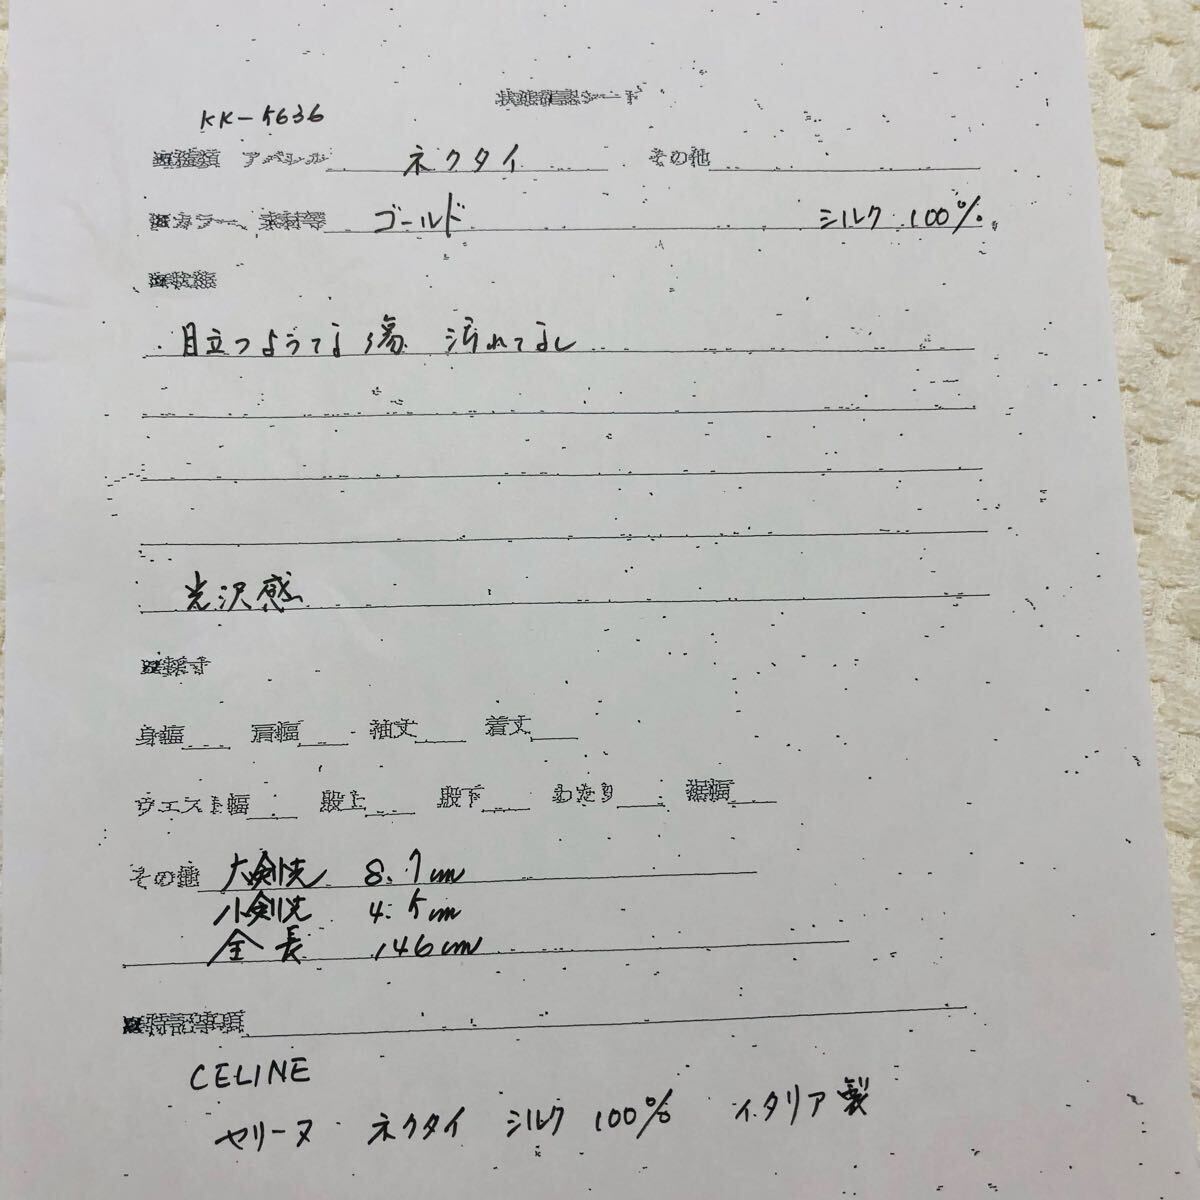 状態確認シート
KK-5636
※種類 アパレル ネクタイ その他
※カラー、素材等 ゴールド シルク 100%
※状態
・目立つような傷 汚れてなし
光沢感
※採寸
身幅 肩幅 袖丈 着丈
ウエスト幅 股上 股下 わたり 裾幅
その他 大剣先 8.7cm
小剣先 4.5cm
全長 146cm
※特記事項
CELINE
セリーヌ ネクタイ シルク 100% イタリア製